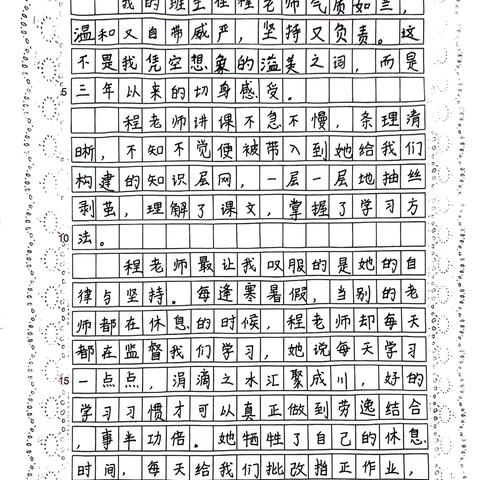 我的班主任程老师气质如兰,
温和又自带威严,坚持又负责。这
不是我凭空想象的溢美之词,而是
5 三年以来的切身感受。
程老师讲课不急不慢,条理清
晰,不知不觉便被带入到她给我们
构建的知识层网,一层一层地抽丝
剥茧,理解了课文,掌握了学习方
10 法。
程老师最让我叹服的是她的自
律与坚持。每逢寒暑假,当别的老
师都在休息的时候,程老师却每天
都在监督我们学习,她说每天学习
15 一点点,涓滴之水汇聚成川,好的
学习习惯才可以真正做到劳逸结合
,事半功倍。她牺牲了自己的休息
时间,每天给我们批改指正作业,